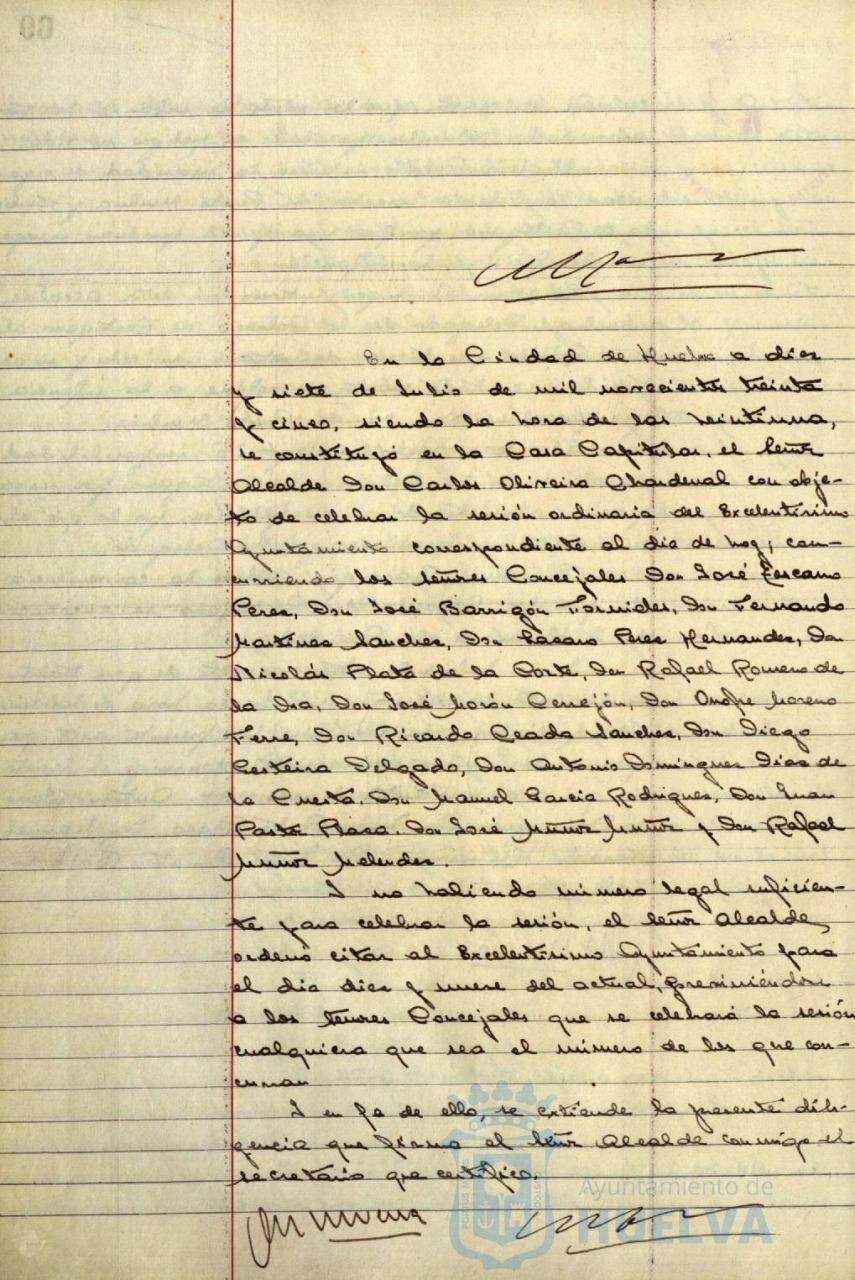 En la Ciudad de Huelva a diez
y siete de Julio de mil novecientos treinta
y cinco, siendo la hora de las veintiuna,
se constituyó en la Casa Capitular, el Señor
Alcalde Don Carlos Oliveira Chardenal con obje-
to de celebrar la sesión ordinaria del Excelentísimo
Ayuntamiento correspondiente al día de hoy; con-
curriendo los señores Concejales Don José Escamo
Perez, Don José Barrigón Fornides, Don Fernando
Martinez Sanchez, Don Lázaro Perez Hernandez, Don
Nicolás Plata de la Corte, Don Rafael Romero de
la Osa, Don José Morón Cerrejón, Don Onofre Moreno
Ferre, Don Ricardo Ceada Sanchez, Don Diego
Certeira Delgado, Don Antonio Dominguez Diaz de
la Cuesta, Don Manuel Garcia Rodriguez, Don Juan
Plaza. Don José Muñoz Muñoz y Don Rafael
Muñoz Melendez.
I no habiendo número legal suficien-
te para celebrar la sesión, el Señor Alcalde,
ordenó citar al Excelentísimo Ayuntamiento para
el dia diez y nueve del actual, previniéndose
a los señores Concejales que se celebrará la sesión
cualquiera que sea el número de los que con-
curran
I en fe de ello, se extiende la presente dili-
gencia que firma el Señor Alcalde conmigo el
secretario que certifico.
Ayuntamiento de
HUELVA